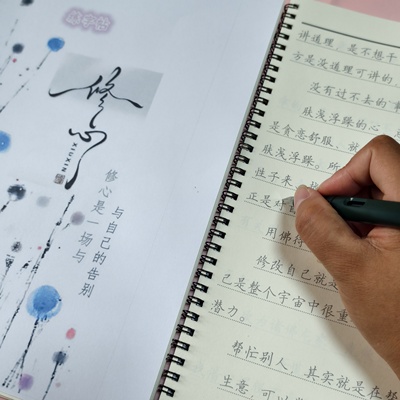 练字帖
修心
XIUXIN
与自己的告别
修心是一场与
讲道理，是不想干
方是没道理可讲的
没有过不去的
肤浅浮躁的心
是贪恋舒服，就
肤浅浮躁。所
性子来，
正是对
用佛
修改自己就
己是整个宇宙中很重
潜力。
帮忙别人，其实就是在
生意，可以